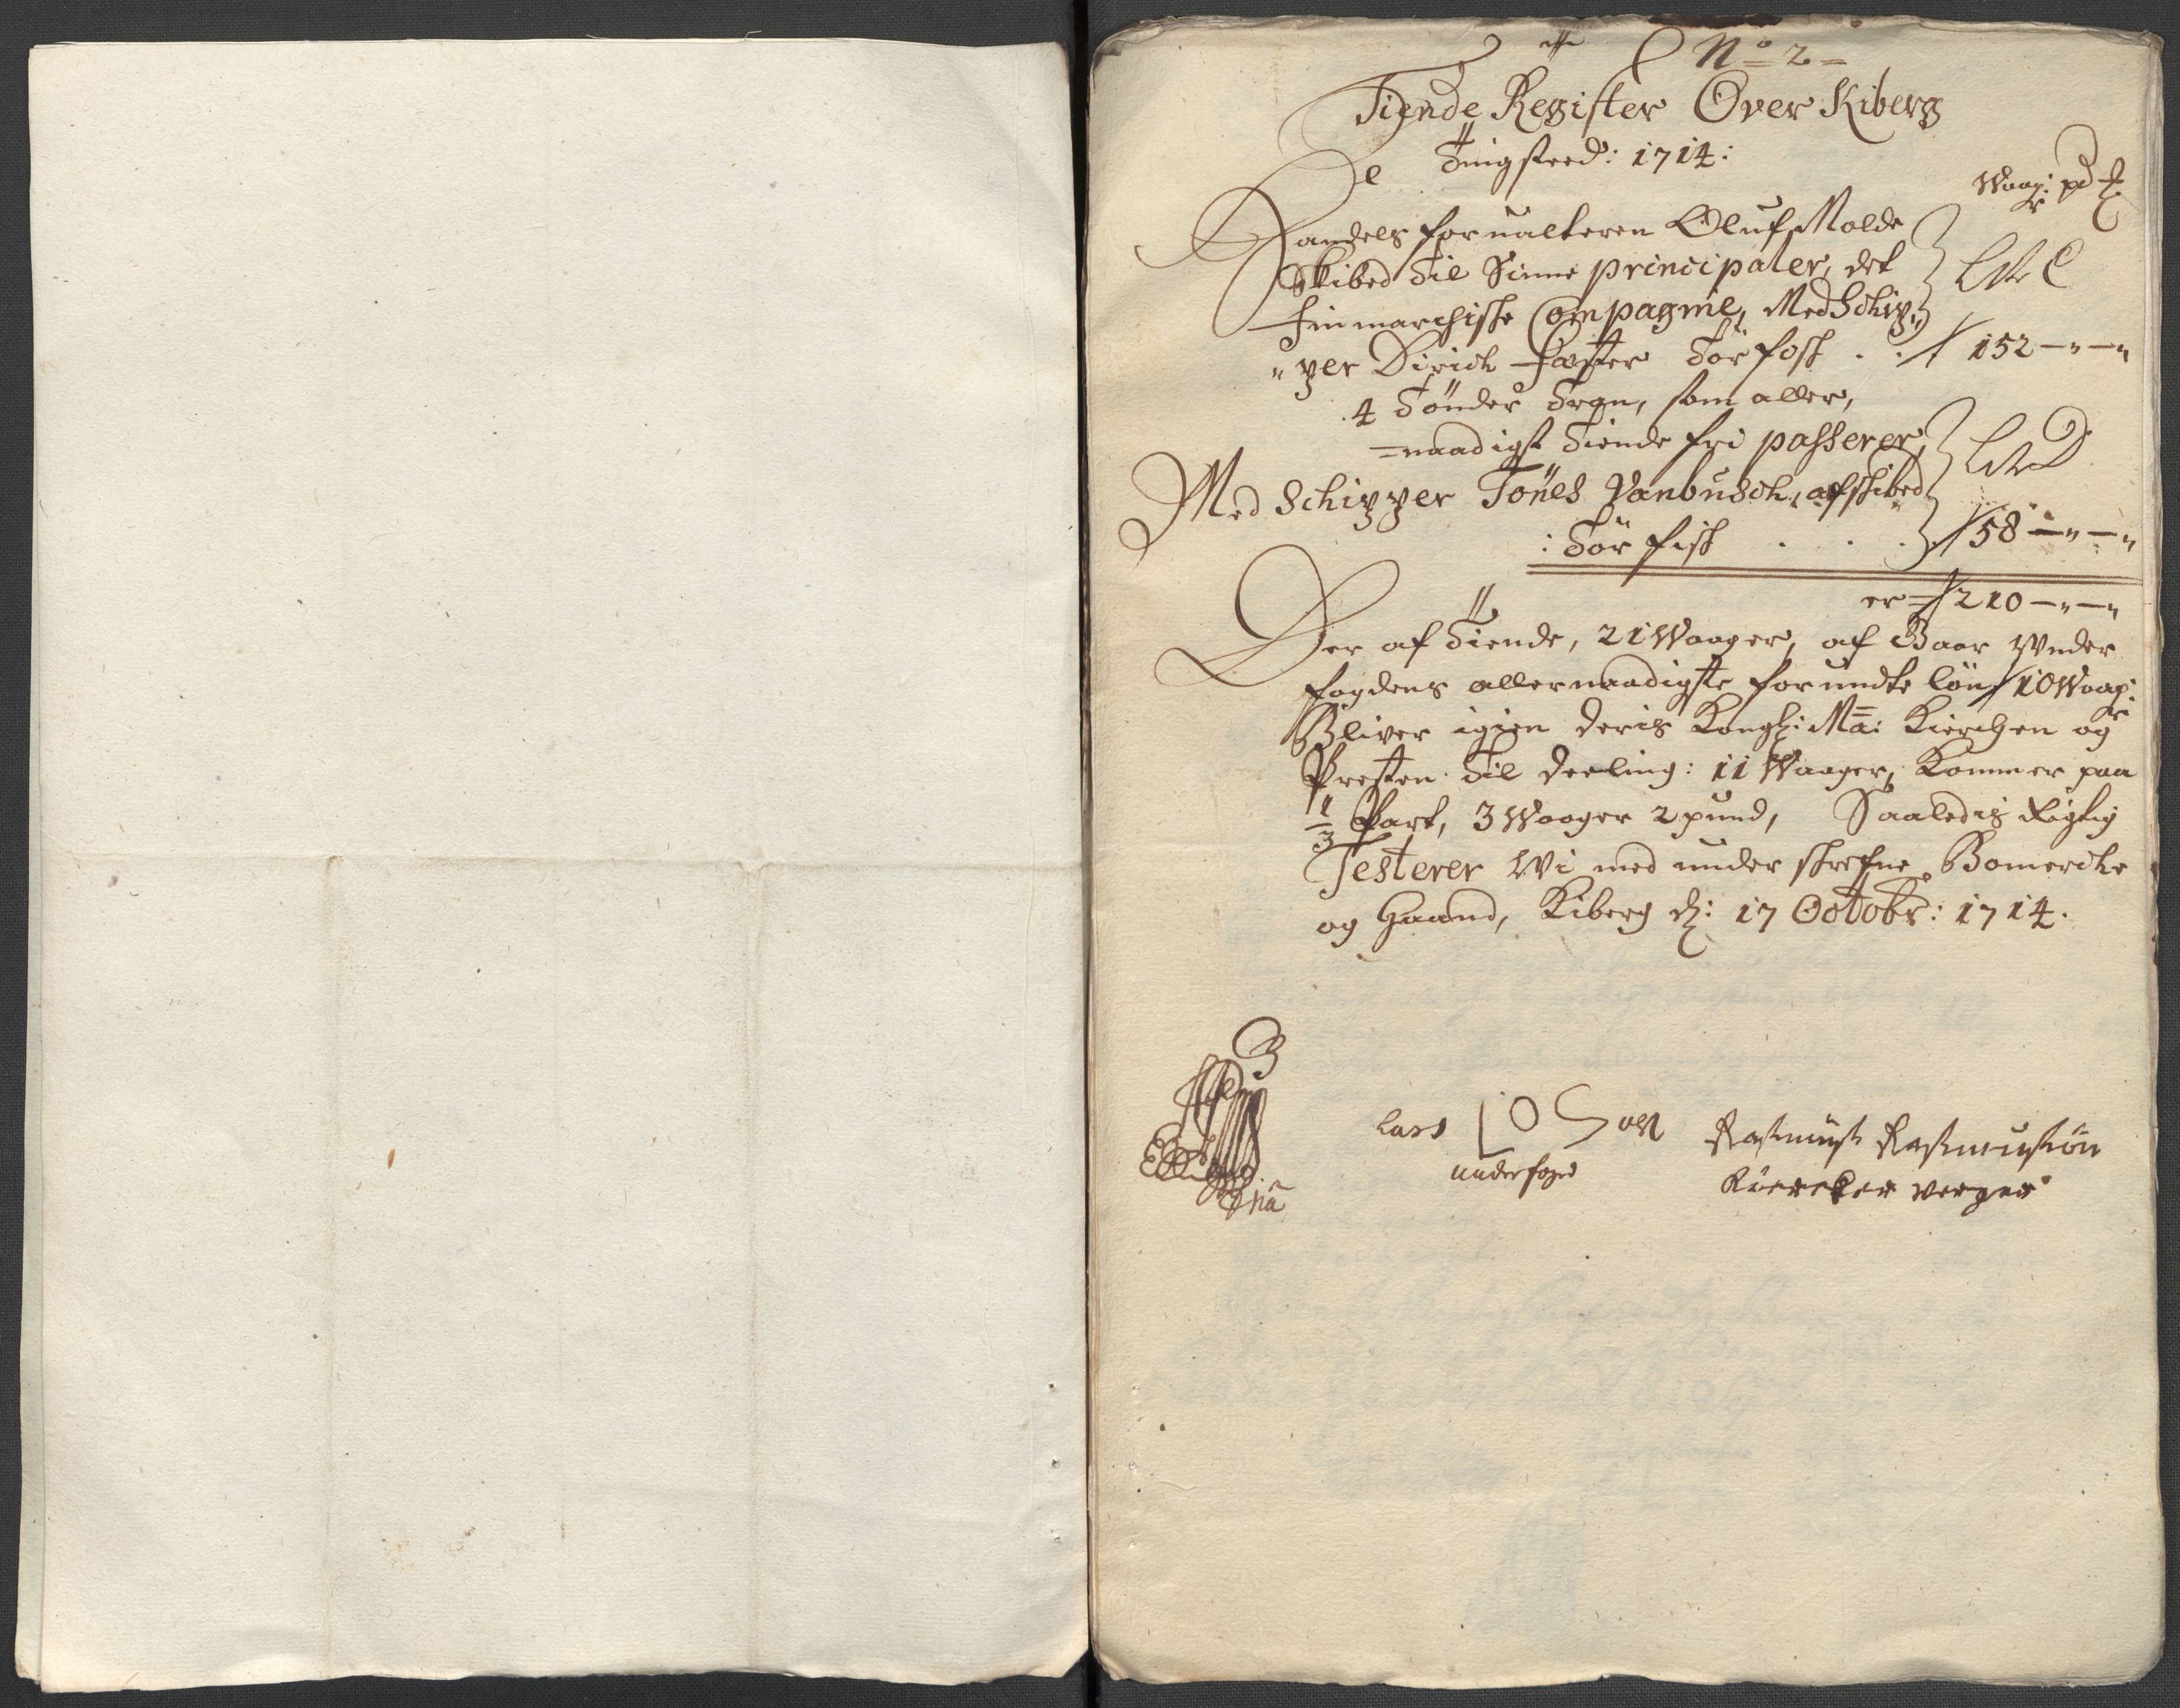 No 2
Tiende Register Over Kiberg
Tingsteed: 1714:
Waag: pd
Handels forualteren Oluf Molde
Skibed Til Sinne principaler, det Litr C
finmarchiske Compagnie, Med Schip,,
"per Dirich Faster Tör fisk . . 152 — " — "
4 Tönder Tran, som aller,
=naadigst Tiende fri passerer,
Med Schipper Tönes Vanbusch, afskibed Litr D
: Tör fisk . . . 58 — " — "
er 210 — " — "
Der af Tiende, 21 Waager, af Baar Under
fogdens allernaadigste forundte lön 10 Waag:
Bliver igien deris Kongl: Ma: Kierchen og
Presten Til deeling: 11 Waager, Kommer paa
1/3 Part, 3 Waager 2 pund, Saaledis Rigtig
Testerer Wi med under skrefne Bomerche
og Haand, Kiberg d: 17 Octobr: 1714.
Lars L O S ol
underfoged
Rasmus Rasmusön
Kiercker verger